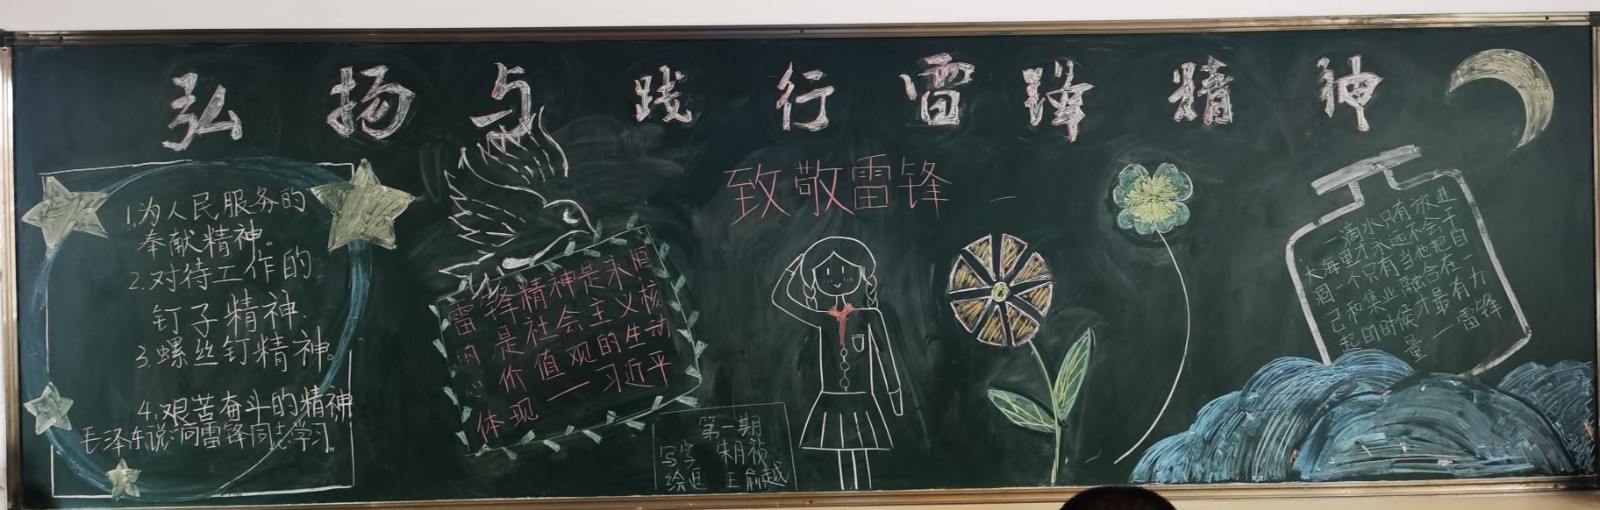 弘扬与践行雷锋精神
致敬雷锋
1.为人民服务的
奉献精神。
2.对待工作的
钉子精神
3.螺丝钉精神。
4.艰苦奋斗的精神
毛泽东说:向雷锋同志学习。
雷锋精神是永恒
的是社会主义核
心价值观的生动
体现——习近平
第一期
写字 朱月祯
绘画 王俞越
一滴水只有放进
大海里才永远不会干
涸一个只有当他把自
己和集业融合在一
起的时候才最有力
量——雷锋